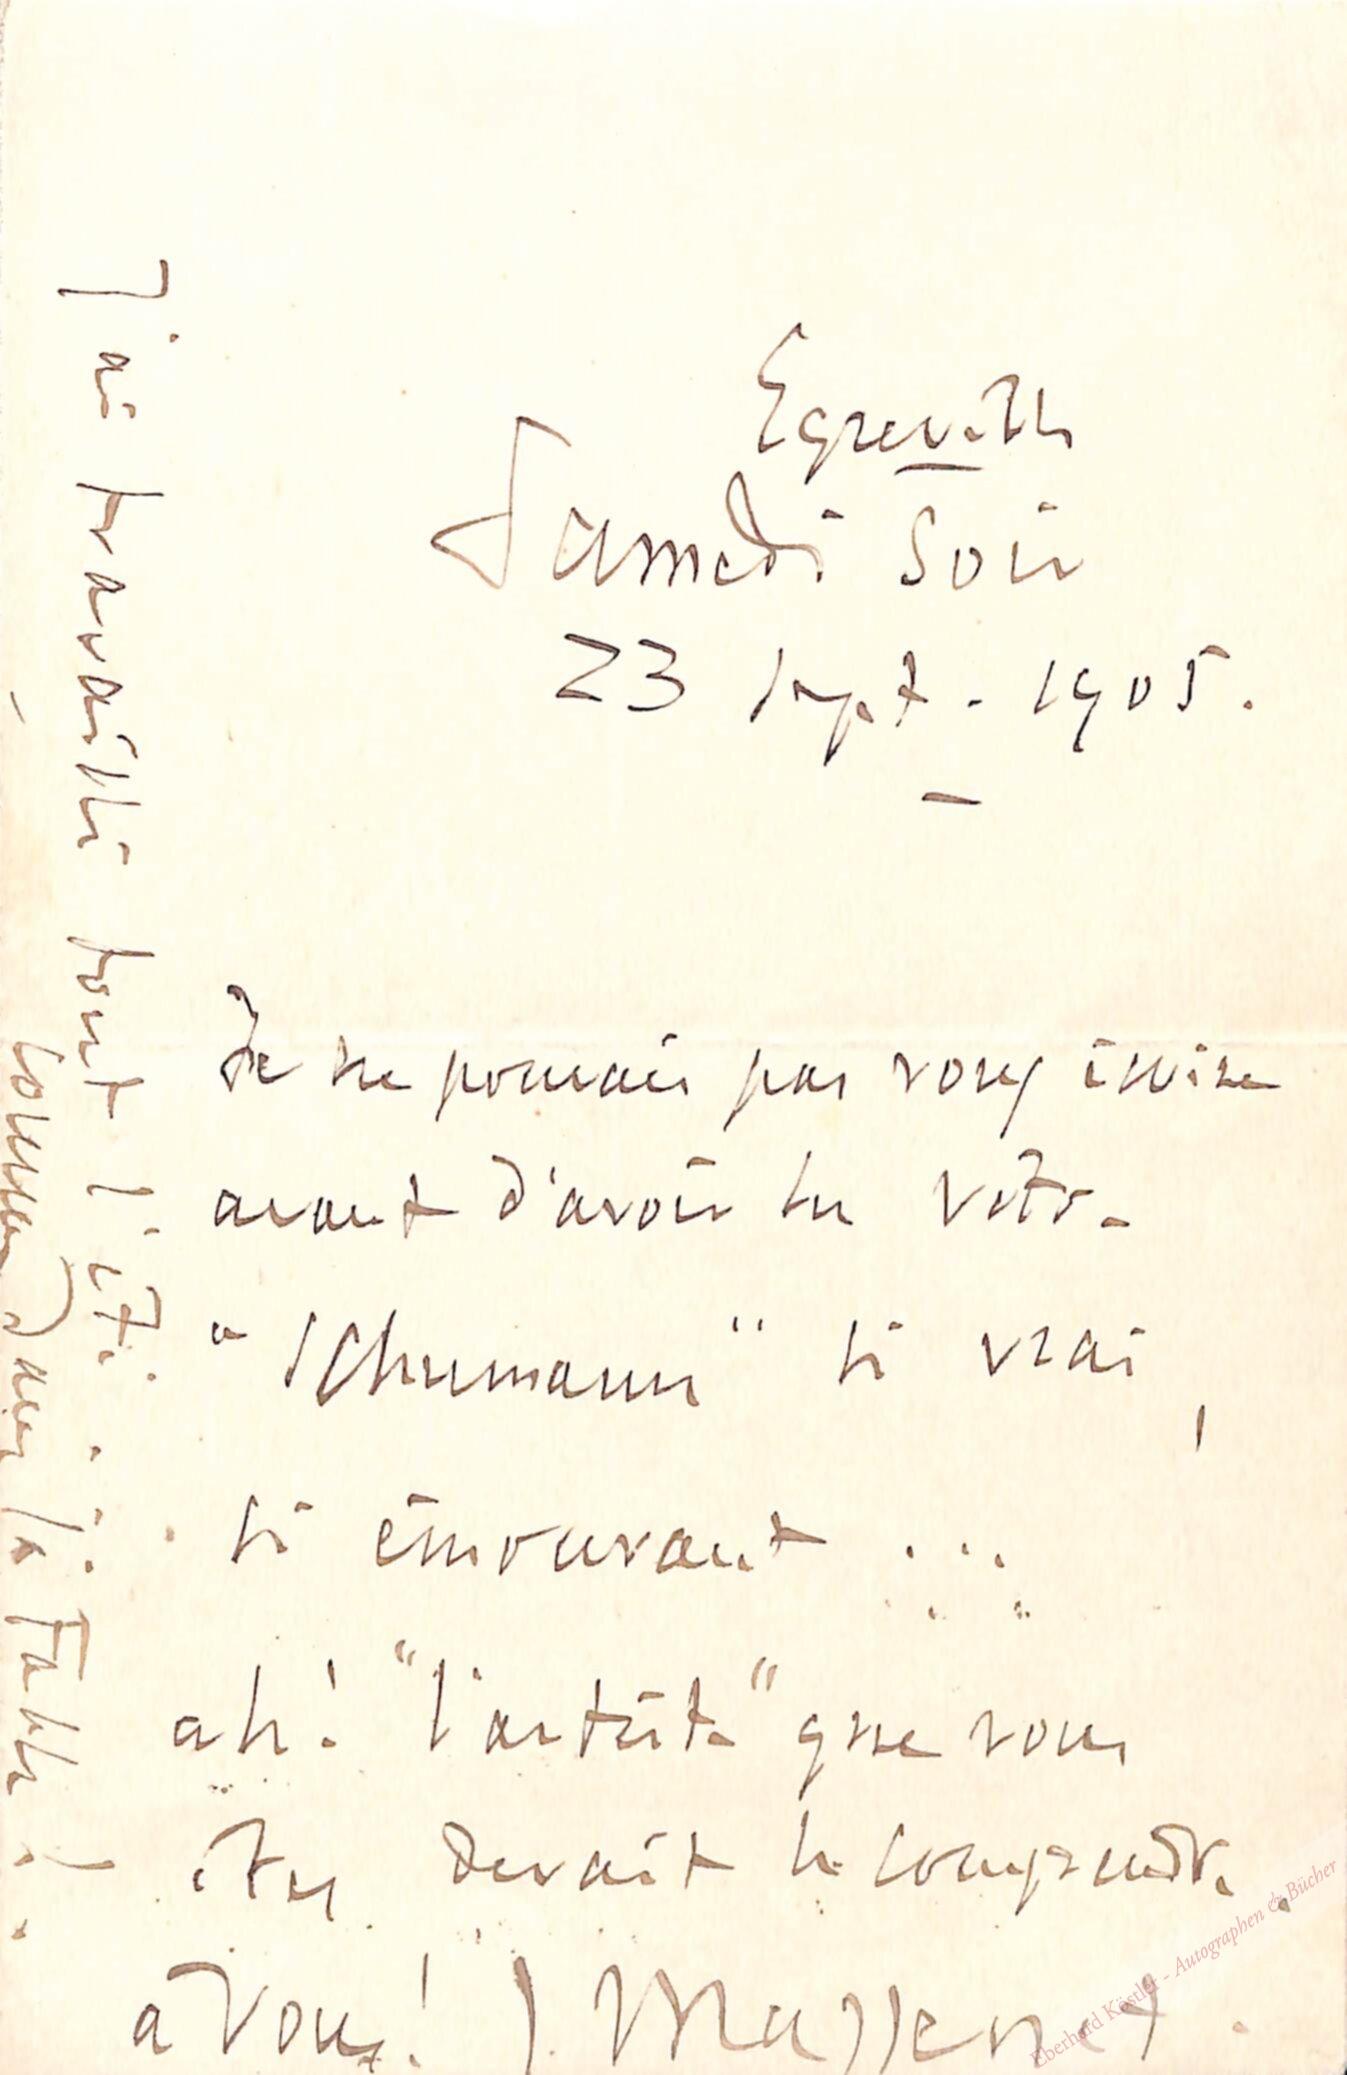 Egreville
Samedi Soir
23 Sept - 1905.
Je ne pouvais pas vous écrire
avant d'avoir lu votre
"Schumann" si vrai,
si émouvant ...
ah! "l'artiste" que vous
êtes devait le comprendre.
à vous! J. Massenet.
J'ai travaillé tout l'été.
comme dans la Fable!
Eberhard Köstler - Autographen & Bücher